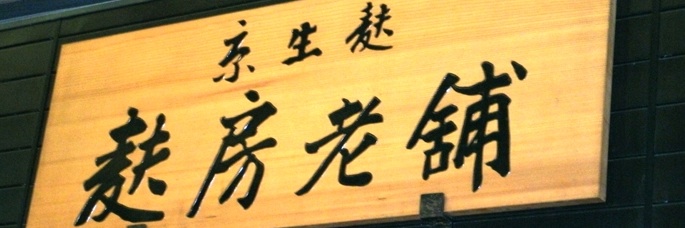 京生麩
麩房老舗